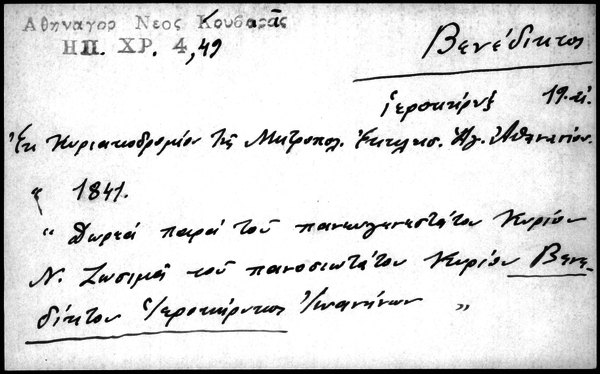 Ἀθηναγορ Νεος Κουβαρᾶς
ΗΠ. ΧΡ. 4, 49
Βενέδικτος
ἱεροκήρυξ 19. αἰ.
Ἐκ Κυριακοδρομίου τῆς Μητροπολ. Ἐκκλησ. Ἁγ. Ἀθανασίου.
" 1841.
" Δωρεά παρά τοῦ πανευγενεστάτου Κυρίου
Ν. Ζωσιμᾶ τοῦ πανοσιωτάτου Κυρίου Βενε-
δίκτου Ἱεροκήρυκος Ἰωαννίνων "